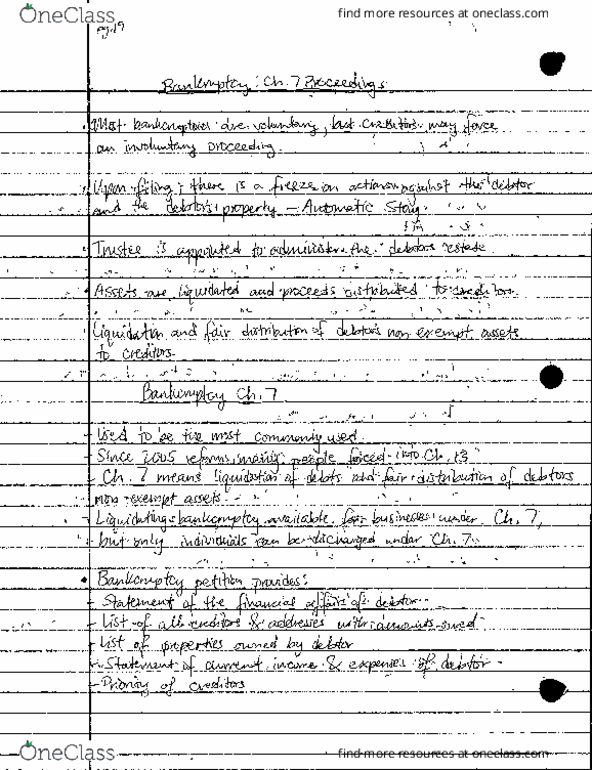 OneClass
find more resources at oneclass.com
pg.19
Bankruptcy: Ch. 7 Proceedings
Most bankruptcies are voluntary, but creditors may force
an involuntary proceeding.
Upon filing, there is a freeze on actions against the debtor
and the debtors property - Automatic Stay.
Trustee is appointed to administer the debtors estate
Assets are liquidated and proceeds distributed to creditors.
Liquidation and fair distribution of debtors non exempt assets
to creditors
Bankruptcy Ch. 7
- Used to be the most commonly used
- Since 2005 reforms, many people forced into Ch. 13
- Ch. 7 means liquidation of debts and fair distribution of debtors
non-exempt assets.
- Liquidating bankruptcy available for businesses under Ch. 7,
but only individuals can be discharged under Ch. 7.
• Bankruptcy petition provides:
- Statement of the financial affairs of debtor
- List of all creditors & addresses with amounts owed
- List of properties owned by debtor
- Statement of current income & expenses of debtor
- Priority of creditors
OneClass
find more resources at oneclass.com